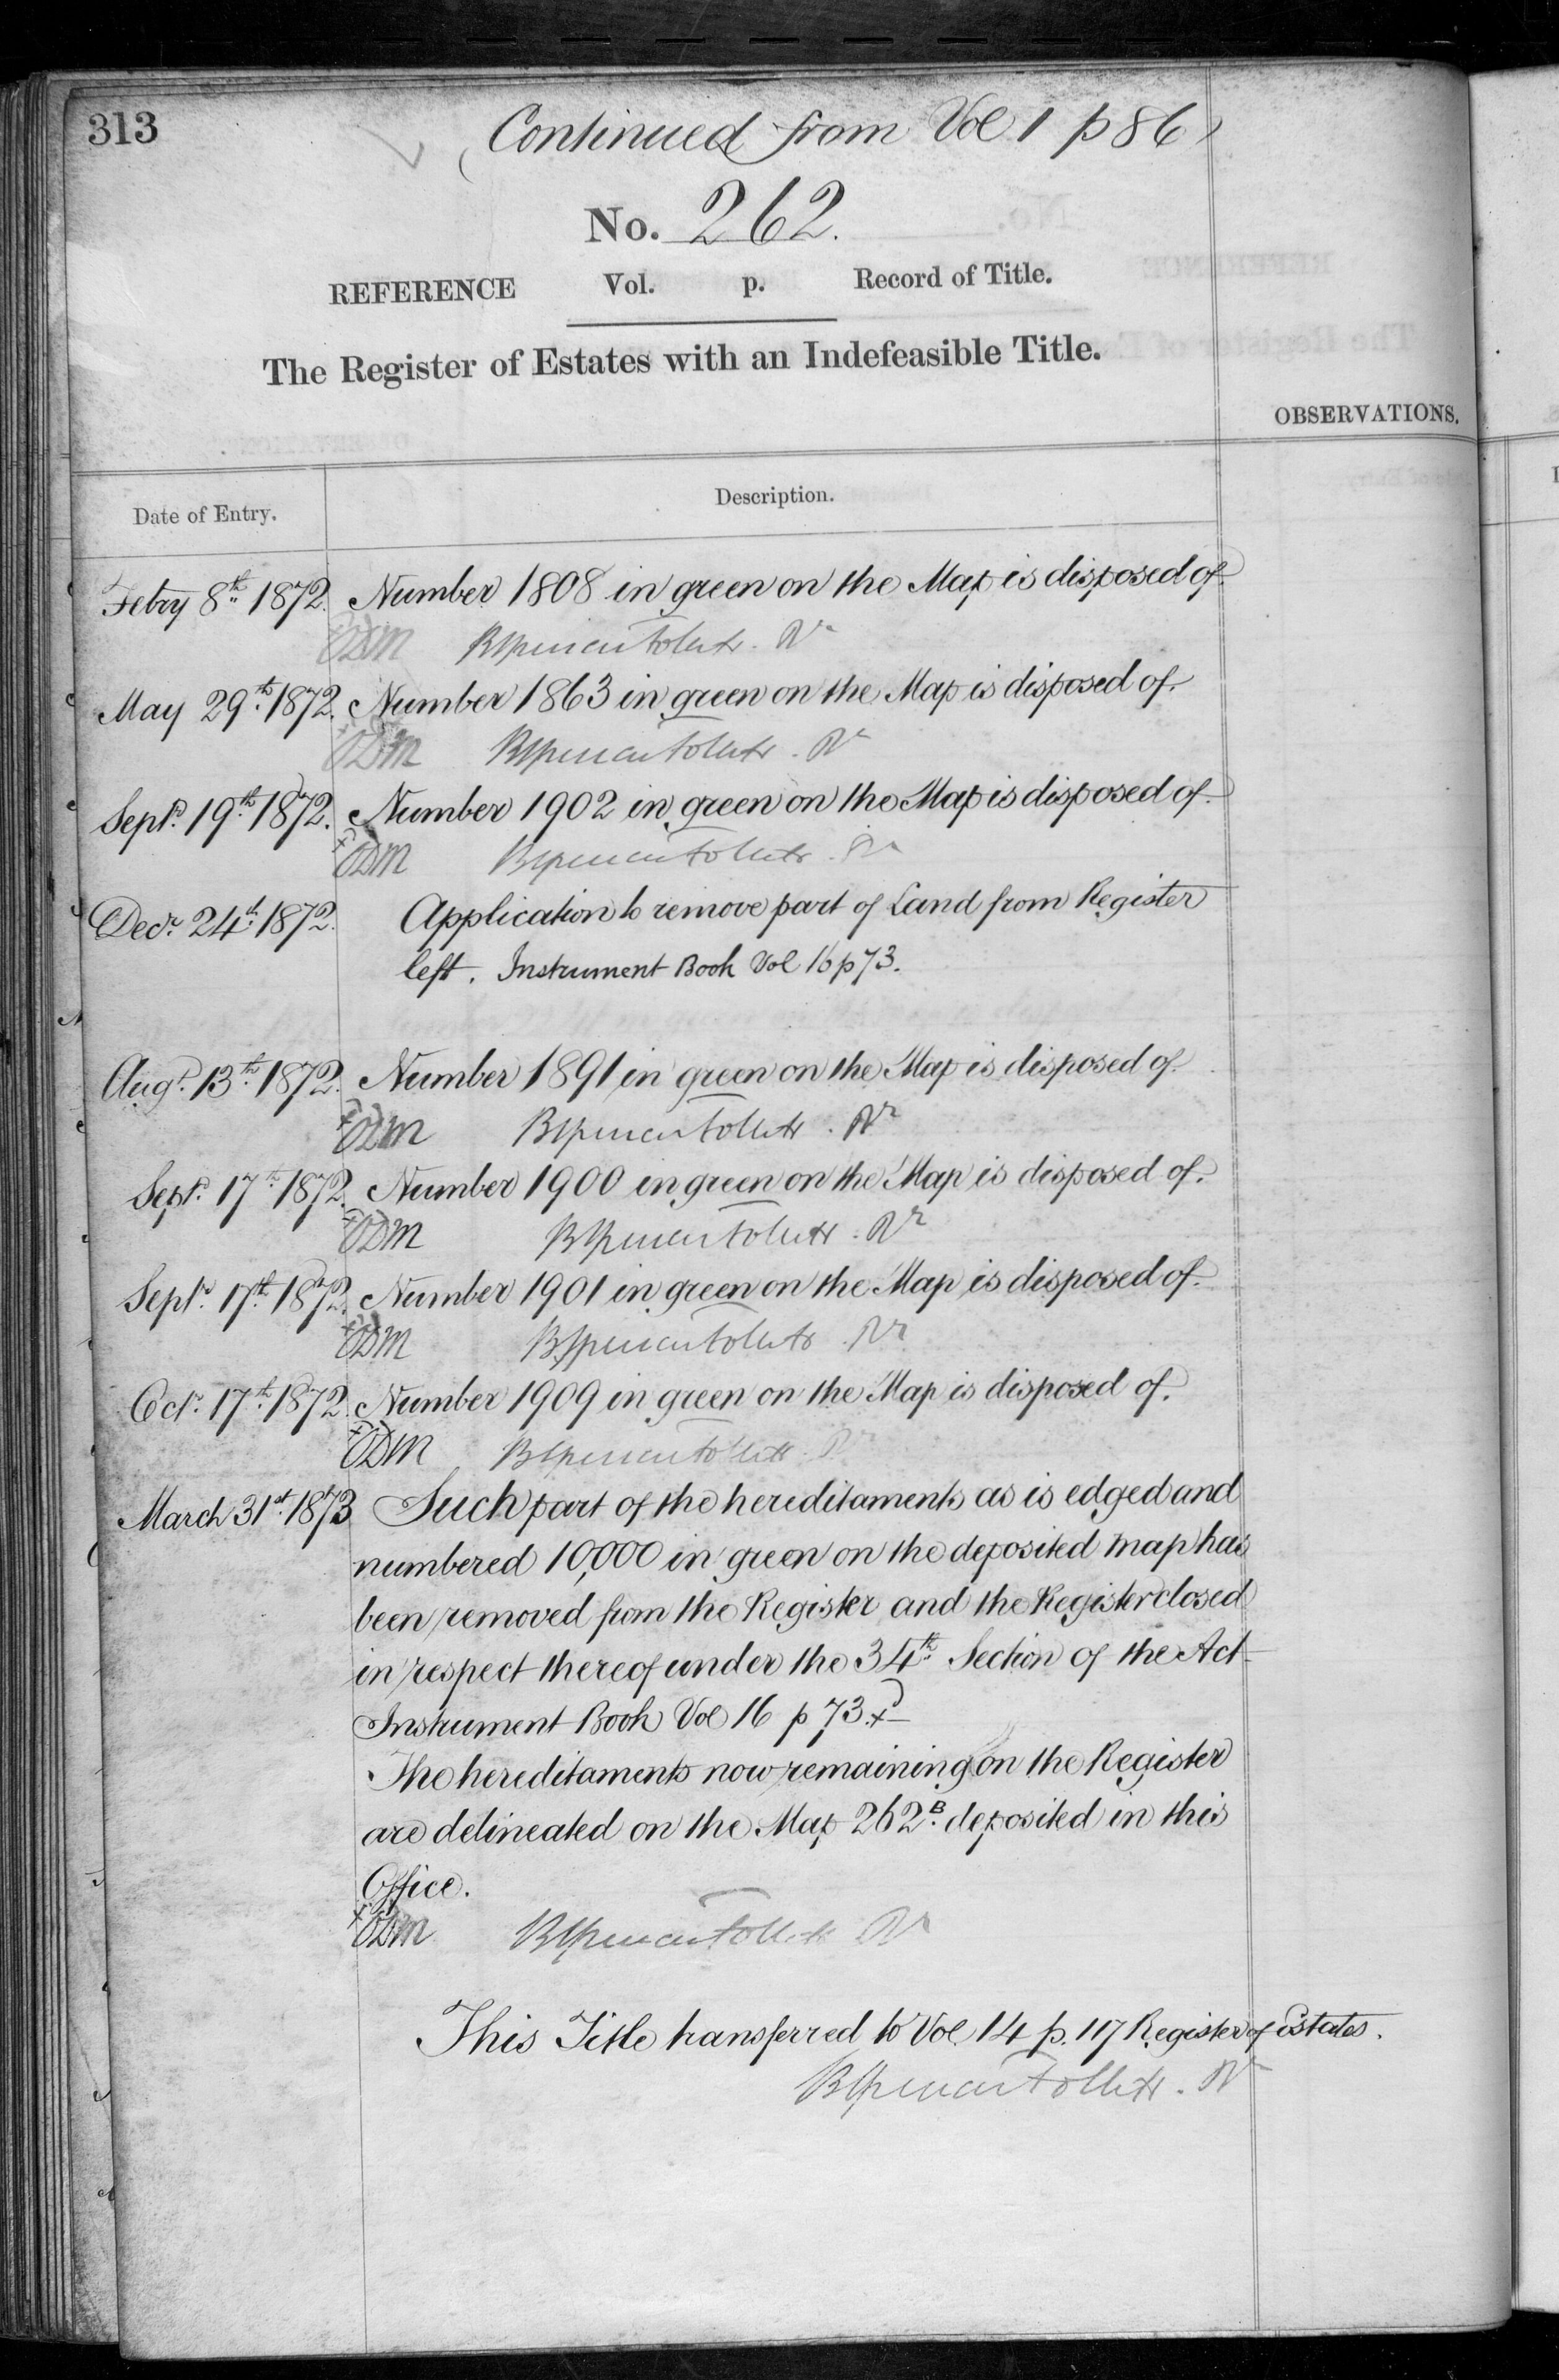 313
(Continued from Vol 1 p 86)
No. 262.
REFERENCE Vol. p. Record of Title.
The Register of Estates with an Indefeasible Title.
OBSERVATIONS.
Date of Entry. Description.
Febry 8th 1872. Number 1808 in green on the Map is disposed of.
ODM Rr
May 29th 1872. Number 1863 in green on the Map is disposed of.
ODM Rr
Septr. 19th 1872. Number 1902 in green on the Map is disposed of.
ODM Rr
Decr. 24th 1872. Application to remove part of Land from Register
left. Instrument Book Vol 16 p 73.
Augt. 13th 1872. Number 1891 in green on the Map is disposed of.
ODM Rr
Septr. 17th 1872. Number 1900 in green on the Map is disposed of.
ODM Rr
Septr. 17th 1872. Number 1901 in green on the Map is disposed of.
ODM Rr
Octr. 17th 1872. Number 1909 in green on the Map is disposed of.
ODM Rr
March 31st 1873 Such part of the hereditaments as is edged and
numbered 10,000 in green on the deposited map has
been removed from the Register and the Register closed
in respect thereof under the 34th Section of the Act
Instrument Book Vol 16 p 73.
The hereditaments now remaining on the Register
are delineated on the Map 262B deposited in this
Office.
ODM Rr
This Title transferred to Vol. 14 p. 117 Register of Estates.
Rr